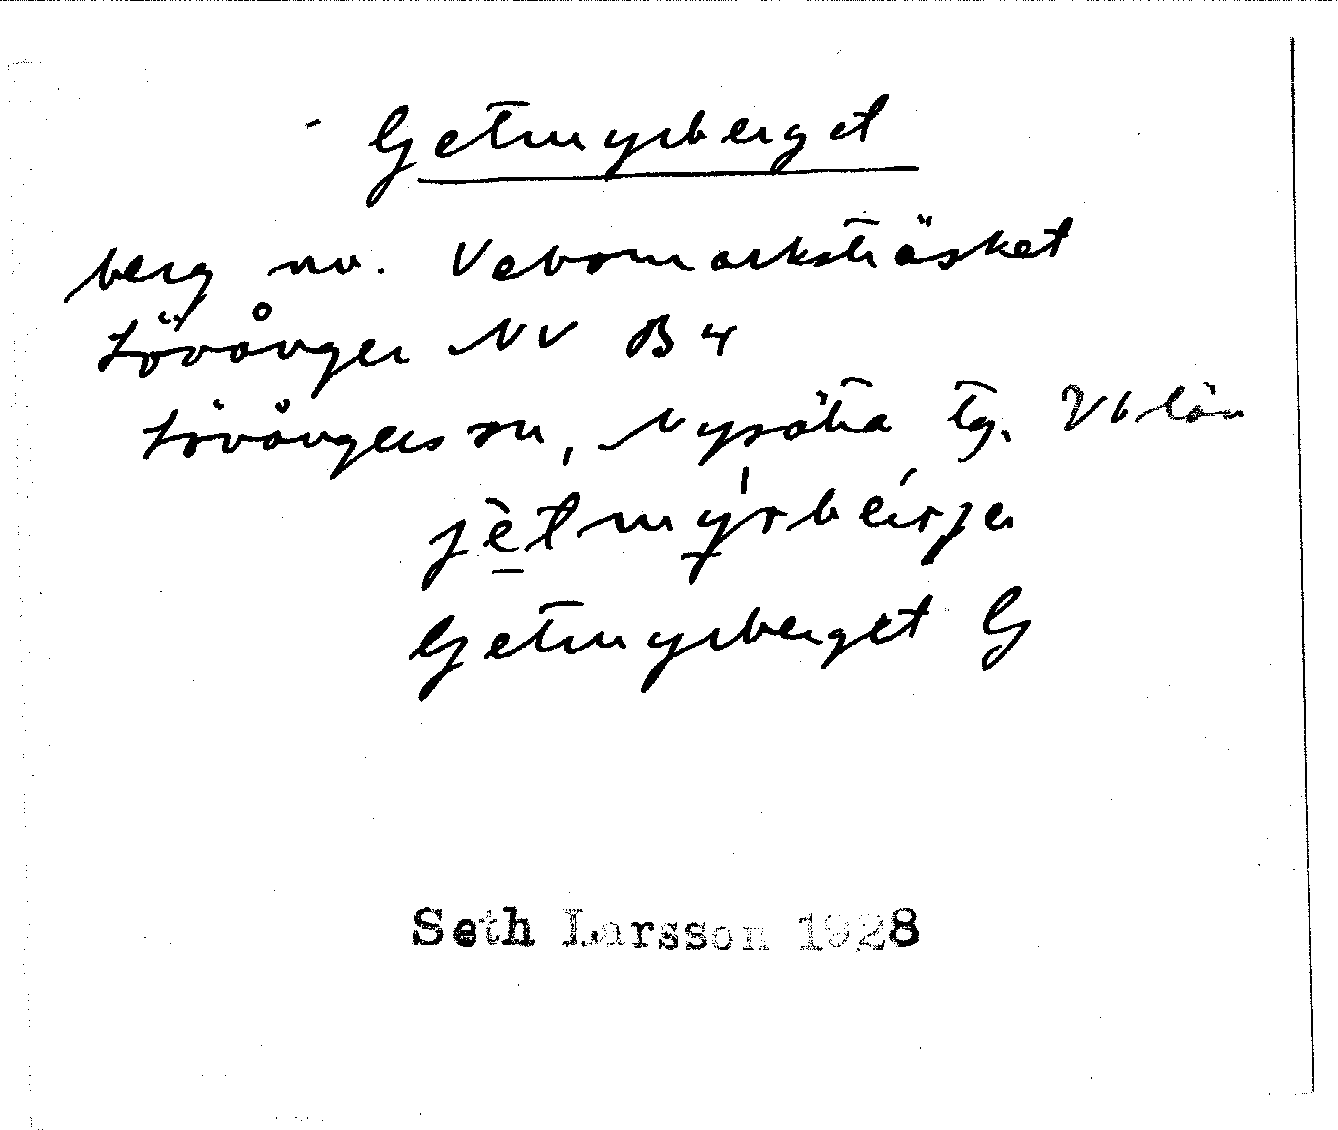 Getmyrberget
berg nv. Vebomarksträsket
Lövånger NV B 4
Lövångers sn, Nysätra tg. Vb län
jètmýrbérjə
Getmyrberget G
Seth Larsson 1928